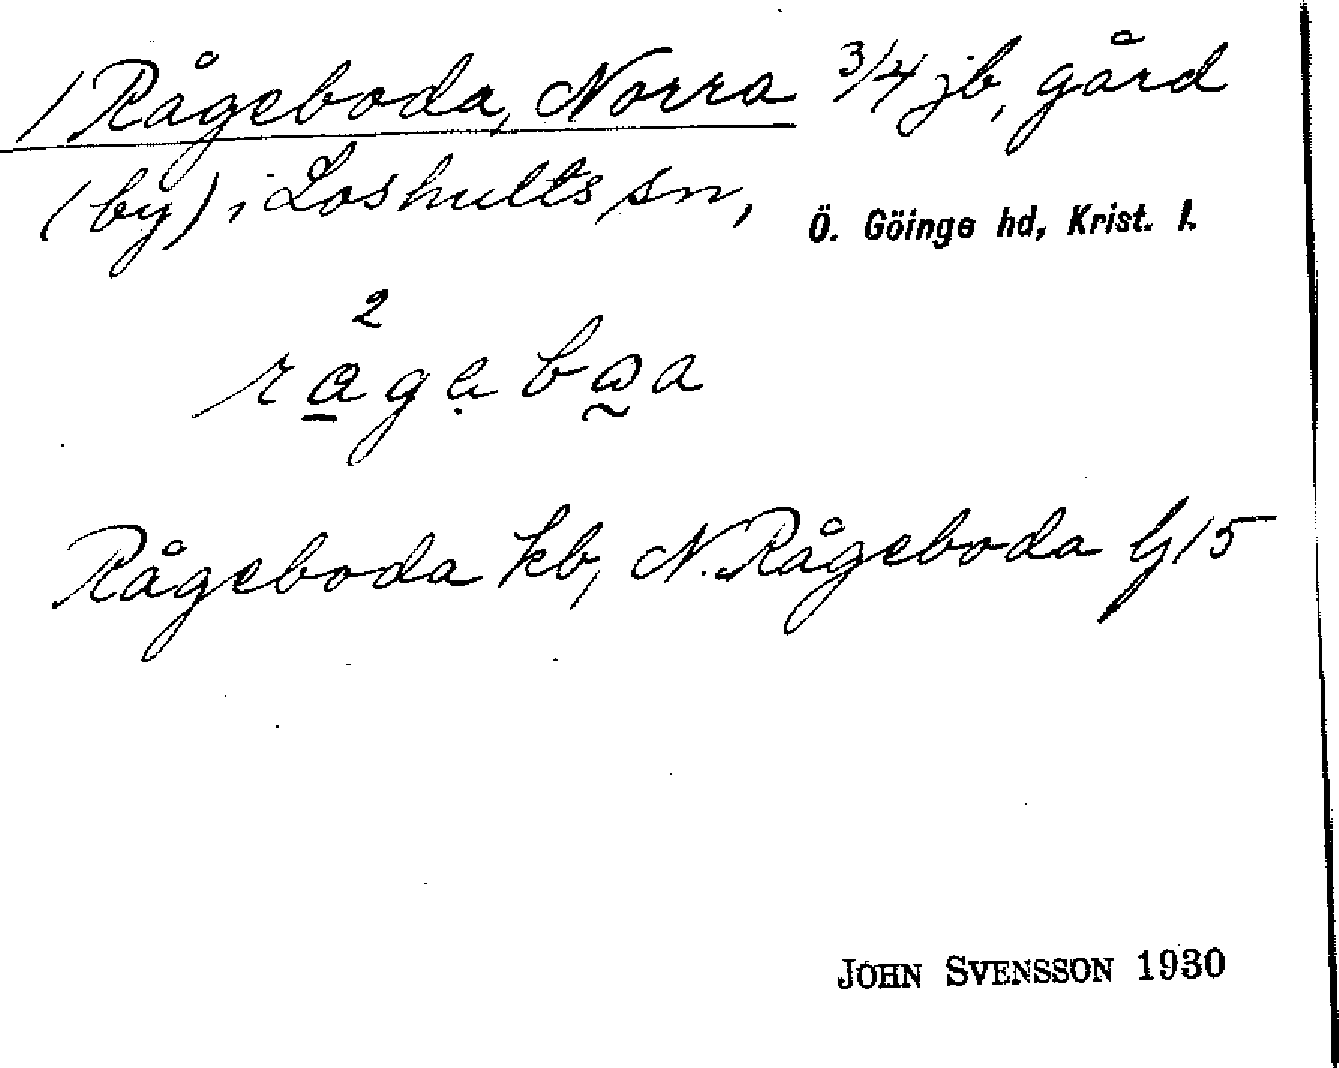 1 Rågeboda, Norra 3/4 jb, gård
(by) i Loshults sn, Ö. Göinge hd, Krist. l.
2
Rågeboda kb, N. Rågeboda G15
JOHN SVENSSON 1930